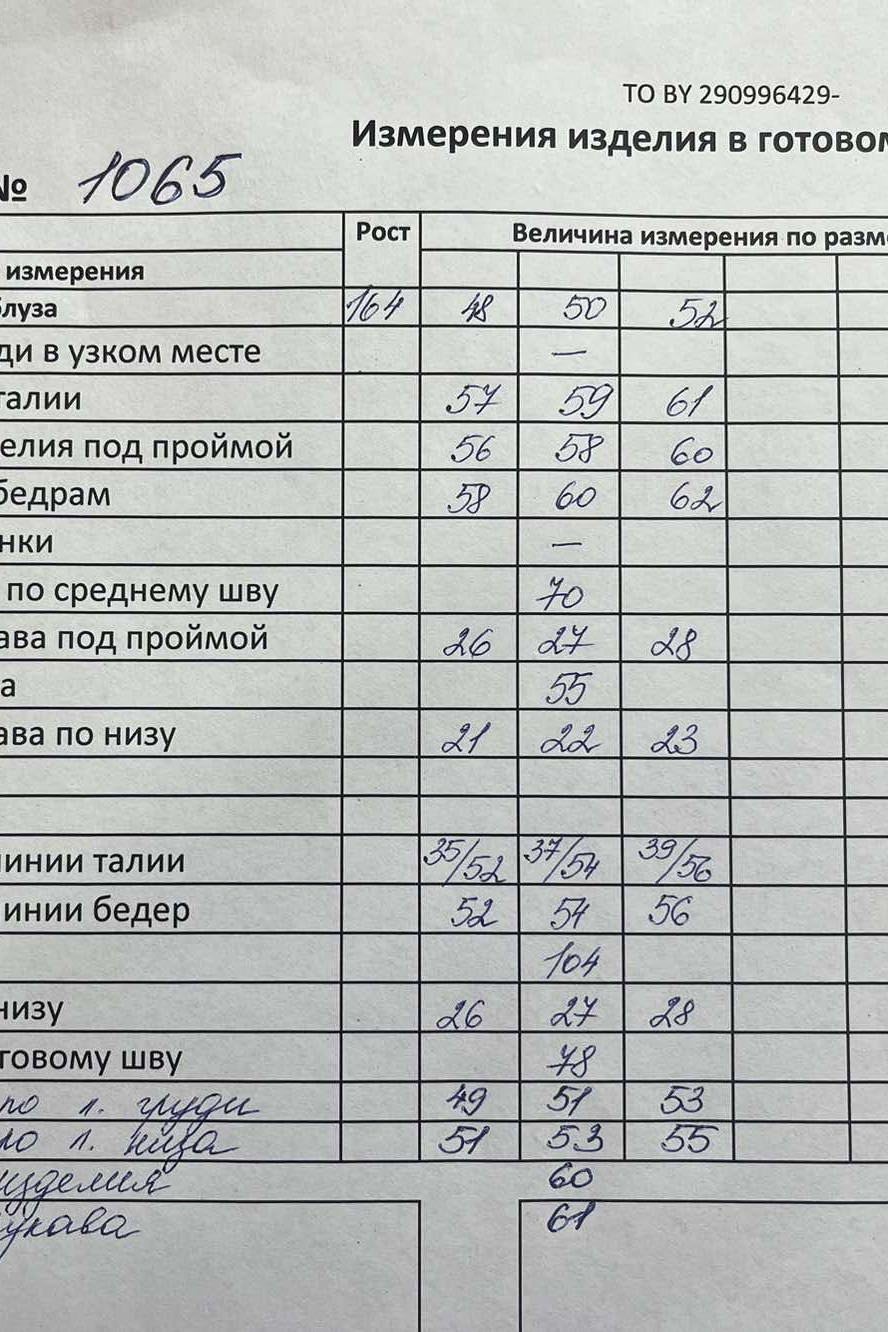 ТО BY 290996429-
Измерения изделия в готовом
№ 1065
Рост Величина измерения по разме
измерения
блуза 164 48 50 52
ди в узком месте —
талии 57 59 61
елия под проймой 56 58 60
бедрам 58 60 62
нки —
по среднему шву 70
ава под проймой 26 27 28
а 55
ава по низу 21 22 23
линии талии 35/52 37/54 39/56
линии бедер 52 54 56
104
низу 26 27 28
говому шву 78
по л. груди 49 51 53
по л. низа 51 53 55
изделия 60
рукава 61